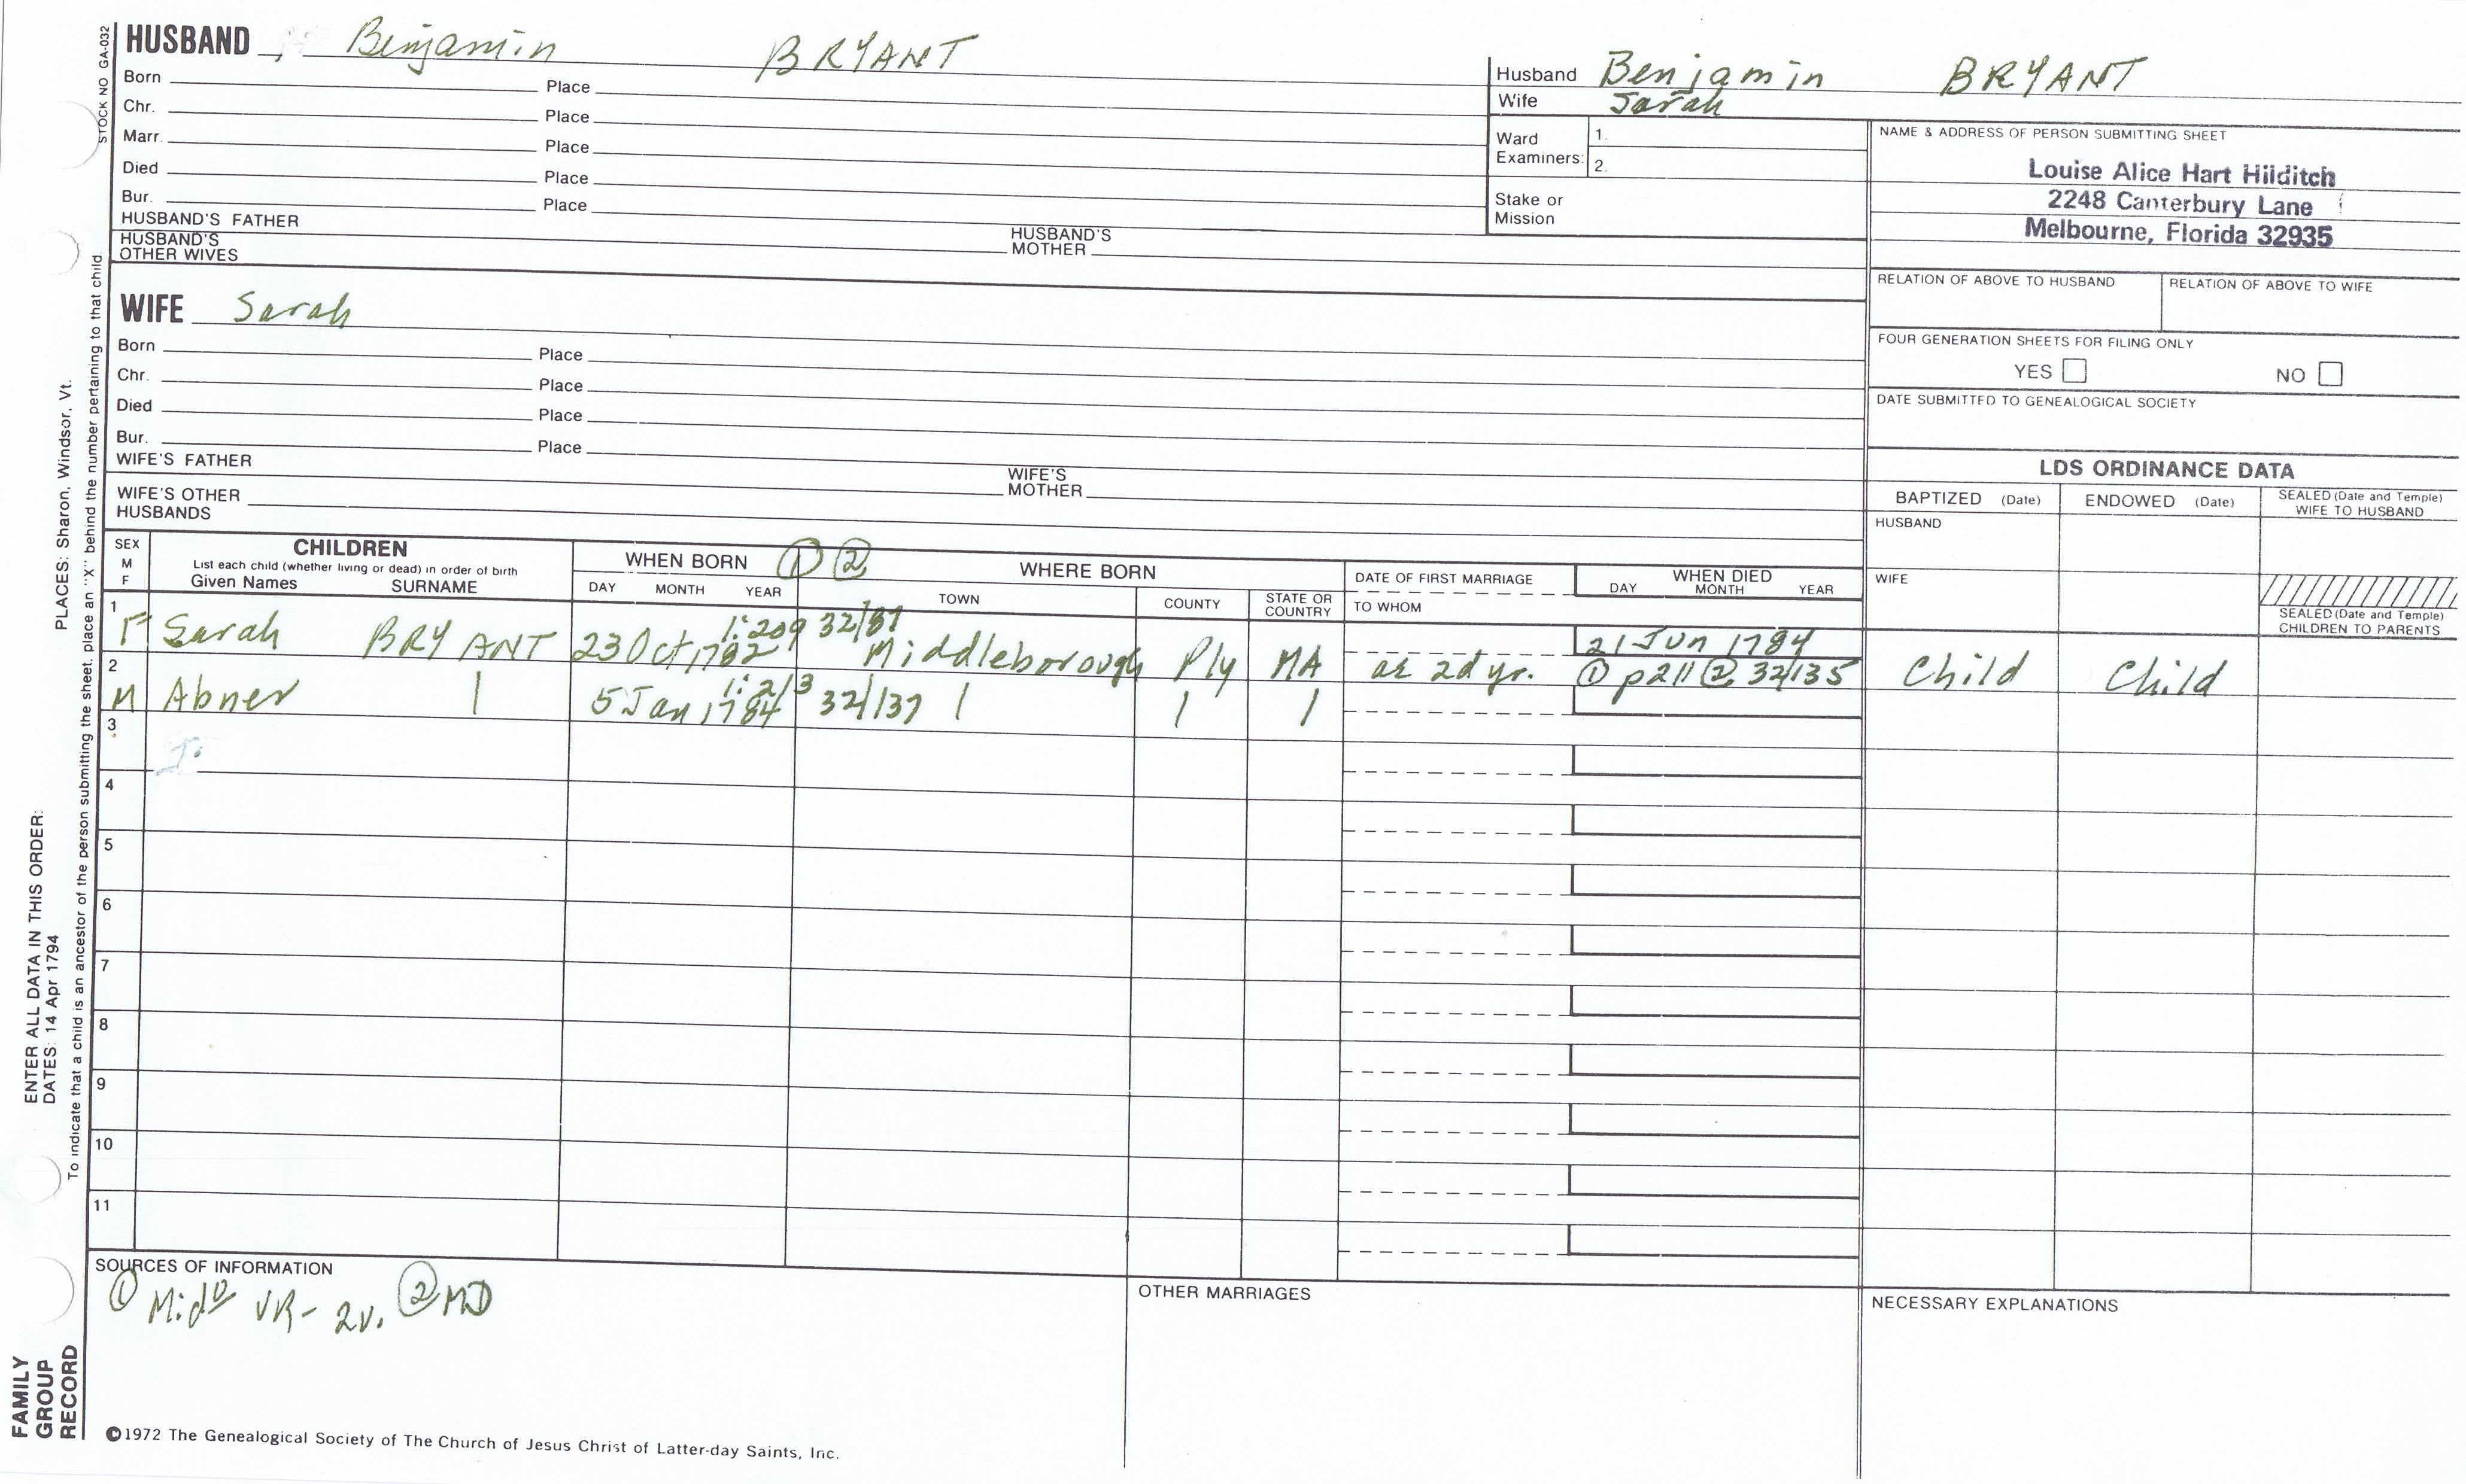 STOCK NO GA-032
HUSBAND Benjamin BRYANT
Born Place
Chr. Place
Marr. Place
Died Place
Bur. Place
HUSBAND'S FATHER
HUSBAND'S MOTHER
HUSBAND'S OTHER WIVES
WIFE Sarah
Born Place
Chr. Place
Died Place
Bur. Place
WIFE'S FATHER
WIFE'S MOTHER
WIFE'S OTHER HUSBANDS
Husband Benjamin BRYANT
Wife Sarah
Ward Examiners: 1.
2.
Stake or Mission
NAME & ADDRESS OF PERSON SUBMITTING SHEET
Louise Alice Hart Hilditch
2248 Canterbury Lane
Melbourne, Florida 32935
RELATION OF ABOVE TO HUSBAND RELATION OF ABOVE TO WIFE
FOUR GENERATION SHEETS FOR FILING ONLY
YES NO
DATE SUBMITTED TO GENEALOGICAL SOCIETY
LDS ORDINANCE DATA
BAPTIZED (Date) ENDOWED (Date) SEALED (Date and Temple) WIFE TO HUSBAND
HUSBAND
WIFE
SEALED (Date and Temple) CHILDREN TO PARENTS
SEX M F
CHILDREN
List each child (whether living or dead) in order of birth
Given Names SURNAME
WHEN BORN ① ②
DAY MONTH YEAR
WHERE BORN
TOWN COUNTY STATE OR COUNTRY
DATE OF FIRST MARRIAGE
TO WHOM
WHEN DIED
DAY MONTH YEAR
1:209 32/87
1 F Sarah BRYANT 23 Oct 1782 Middleborough Ply MA 21 Jun 1784
ae 2d yr. ① p211 ② 32/135 Child Child
1:213 32/137
2 M Abner | 5 Jan 1784 | | |
3
4
5
6
7
8
9
10
11
SOURCES OF INFORMATION
① Midº VR- 2v. ② MD
OTHER MARRIAGES
NECESSARY EXPLANATIONS
©1972 The Genealogical Society of The Church of Jesus Christ of Latter-day Saints, Inc.
FAMILY GROUP RECORD
ENTER ALL DATA IN THIS ORDER:
DATES: 14 Apr 1794
PLACES: Sharon, Windsor, Vt.
To indicate that a child is an ancestor of the person submitting the sheet, place an "X" behind the number pertaining to that child